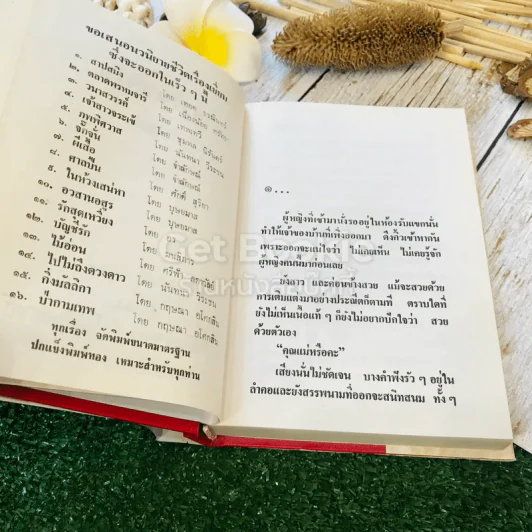 ขอเสนอนวนิยายชีวิตเรื่องเยี่ยม
ซึ่งจะออกในเร็ว ๆ นี้
๑. สาปสมิง โดย
๒. ตลาดพรหมจารี โดย
๓. วนาสวรรค์ โดย
๔. เจ้าสาวจระเข้ โดย เทพเทวี
๕. ภูตพิศวาส โดย
๖. จักจั่น โดย
๗. ผีเสื้อ โดย
๘. ศาลปืน โดย
๙. ในห้วงเสน่หา โดย
๑๐. อวสานอสูร โดย บุษยมาส
๑๑. รักสุดเหวี่ยง โดย บุษยมาส
๑๒. บัญชีรัก โดย
๑๓. ไม้อ่อน โดย
๑๔. ไปไม่ถึงดวงดาว โดย
๑๕. กิ่งมัลลิกา โดย
๑๖. ป่ากามเทพ โดย กฤษณา อโศกสิน
ทุกเรื่อง จัดพิมพ์ขนาดมาตรฐาน
ปกแข็งพิมพ์ทอง เหมาะสำหรับทุกท่าน
๑...
ผู้หญิงที่เข้ามานั่งรออยู่ในห้องรับแขกนั้น
ทำให้เจ้าของบ้านที่เพิ่งออกมา ดึงคิ้วเข้าหากัน
เพราะออกจะแน่ใจว่า ไม่เคยเห็น ไม่เคยรู้จัก
ผู้หญิงคนนี้มาก่อนเลย
ยังสาว และค่อนข้างสวย แม้จะสวยด้วย
การเติมแต่งมาอย่างประณีตก็ตามที ตราบใดที่
ยังไม่เห็นเนื้อแท้ ๆ ก็ยังไม่อยากปักใจว่า สวย
ด้วยตัวเอง
“คุณแม่หรือคะ”
เสียงนั้นไม่ชัดเจน บางคำฟังรัว ๆ อยู่ใน
ลำคอและยังสรรพนามที่ออกจะสนิทสนม ทั้ง ๆ
Get Bookie
ร้านหนังสือเก่า